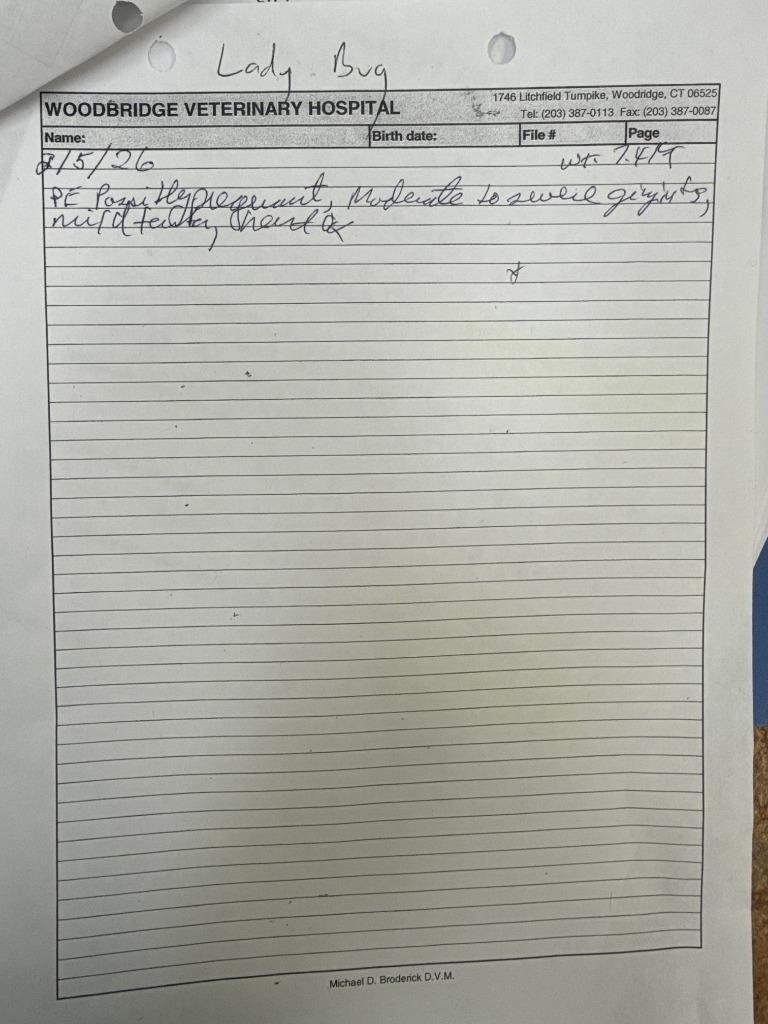 Lady Bug
1746 Litchfield Turnpike, Woodridge, CT 06525
WOODBRIDGE VETERINARY HOSPITAL
Tel: (203) 387-0113 Fax: (203) 387-0087
Name: Birth date: File # Page
2/5/26 wt. 7.4
PE Possibly pregnant, Moderate to severe
mild
Michael D. Broderick D.V.M.